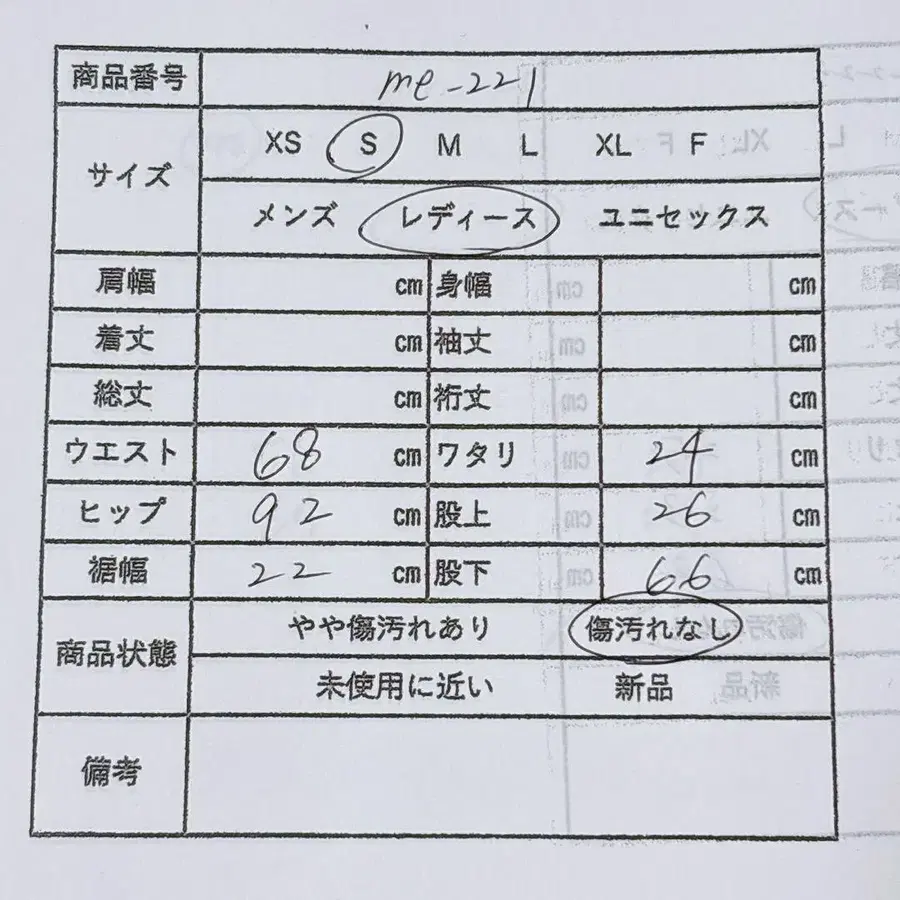 商品番号 me-221
サイズ XS S M L XL F
メンズ レディース ユニセックス
肩幅 cm 身幅 cm
着丈 cm 袖丈 cm
総丈 cm 裄丈 cm
ウエスト 68 cm ワタリ 24 cm
ヒップ 92 cm 股上 26 cm
裾幅 22 cm 股下 66 cm
商品状態 やや傷汚れあり 傷汚れなし
未使用に近い 新品
備考